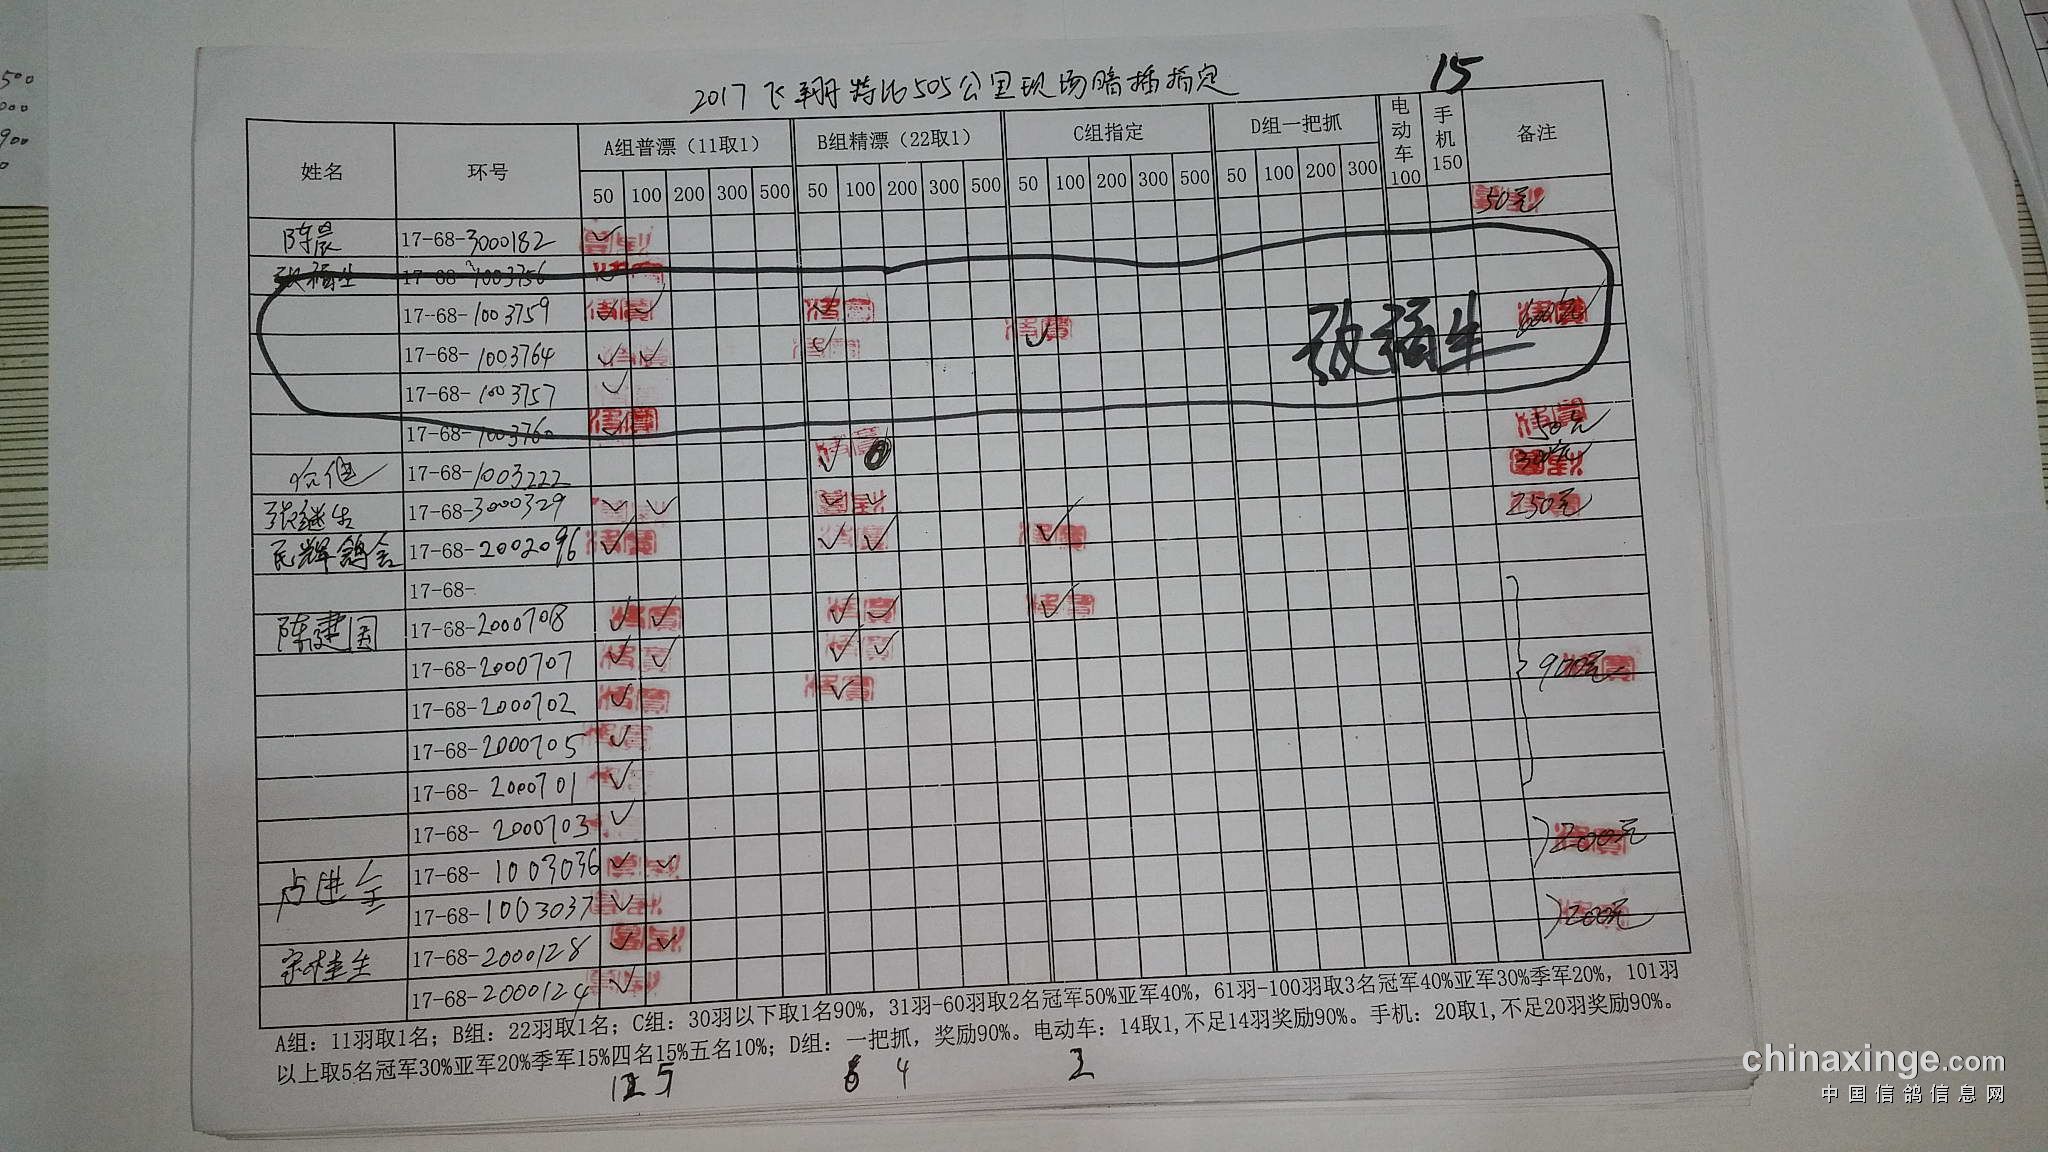 500
000
900
0
2017飞翔特比505公里现场暗插指定
15
姓名 环号 A组普漂（11取1） B组精漂（22取1） C组指定 D组一把抓 电动车100 手机150 备注
50 100 200 300 500 50 100 200 300 500 50 100 200 300 500 50 100 200 300
50元
陈晨 17-68-3000182 ✓
张福生 17-68-1003756 ✓
17-68-1003759 ✓ ✓ ✓
17-68-1003764 ✓ ✓ ✓ ✓
张福生
17-68-1003757 ✓
17-68-1003760 ✓ 50元
17-68-1003222 ✓
张继生 17-68-3000329 ✓ ✓ ✓ ✓ 250元
民辉鸽舍 17-68-2002096 ✓ ✓ ✓ ✓
17-68-
陈建国 17-68-2000708 ✓ ✓ ✓ ✓ ✓
17-68-2000707 ✓ ✓ ✓ ✓ 900元
17-68-2000702 ✓ ✓
17-68-2000705 ✓
17-68-2000701 ✓
17-68-2000703 ✓ 200元
卢进全 17-68-1003036 ✓ ✓
17-68-1003037 ✓ 200元
宗桂生 17-68-2000128 ✓ ✓
17-68-2000124 ✓
A组：11羽取1名；B组：22羽取1名；C组：30羽以下取1名90%，31羽-60羽取2名冠军50%亚军40%，61羽-100羽取3名冠军40%亚军30%季军20%，101羽
以上取5名冠军30%亚军20%季军15%四名15%五名10%；D组：一把抓，奖励90%。电动车：14取1,不足14羽奖励90%。手机：20取1,不足20羽奖励90%。
12 5 6 4 2
chinaxinge.com
中国信鸽信息网